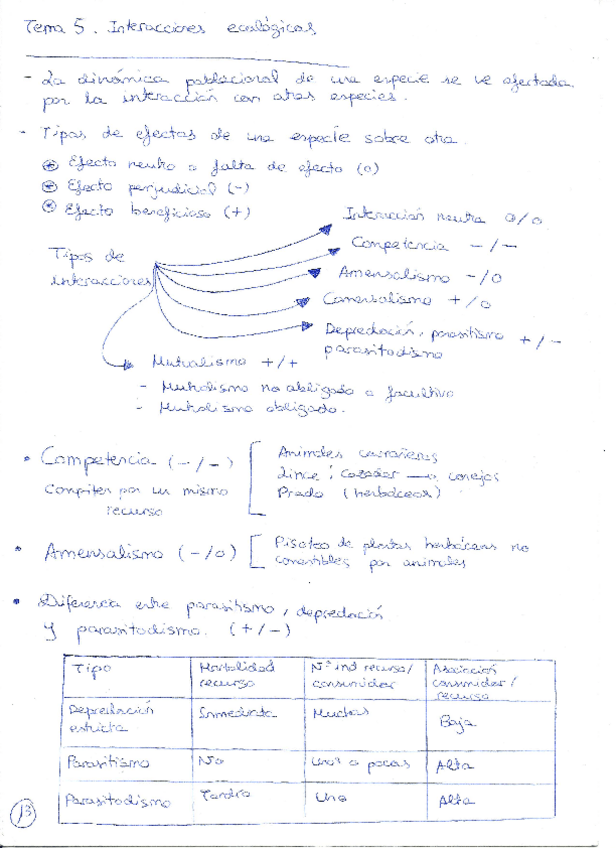 Tema 5. Interacciones ecológicas
- La dinámica poblacional de una especie se ve afectada
por la interacción con otras especies.
- Tipos de efectos de una especie sobre otra.
Efecto neutro o falta de efecto (0)
Efecto perjudicial (-)
Efecto beneficioso (+)
Tipos de
interacciones
Interacción neutra 0/0
Competencia -/-
Amensalismo -/0
Comensalismo +/0
Depredación, parasitismo +/-
parasitodismo
Mutualismo +/+
- Mutualismo no obligado o facultivo
- Mutualismo obligado.
• Competencia (-/-)
Compiten por un mismo
recurso
Animales carroñeros
Lince, cazador → conejos
Prado (herbáceas)
• Amensalismo (-/0)
Pisoteo de plantas herbáceas no
comestibles por animales
• Diferencia entre parasitismo, depredación
y parasitodismo. (+/-)
Tipo | Mortalidad recurso | Nº ind recurso/ consumidor | Asociación consumidor/ recurso
Depredación estricta | Inmediata | Muchos | Baja
Parasitismo | No | Uno o pocos | Alta
Parasitodismo | Tardía | Uno | Alta
13